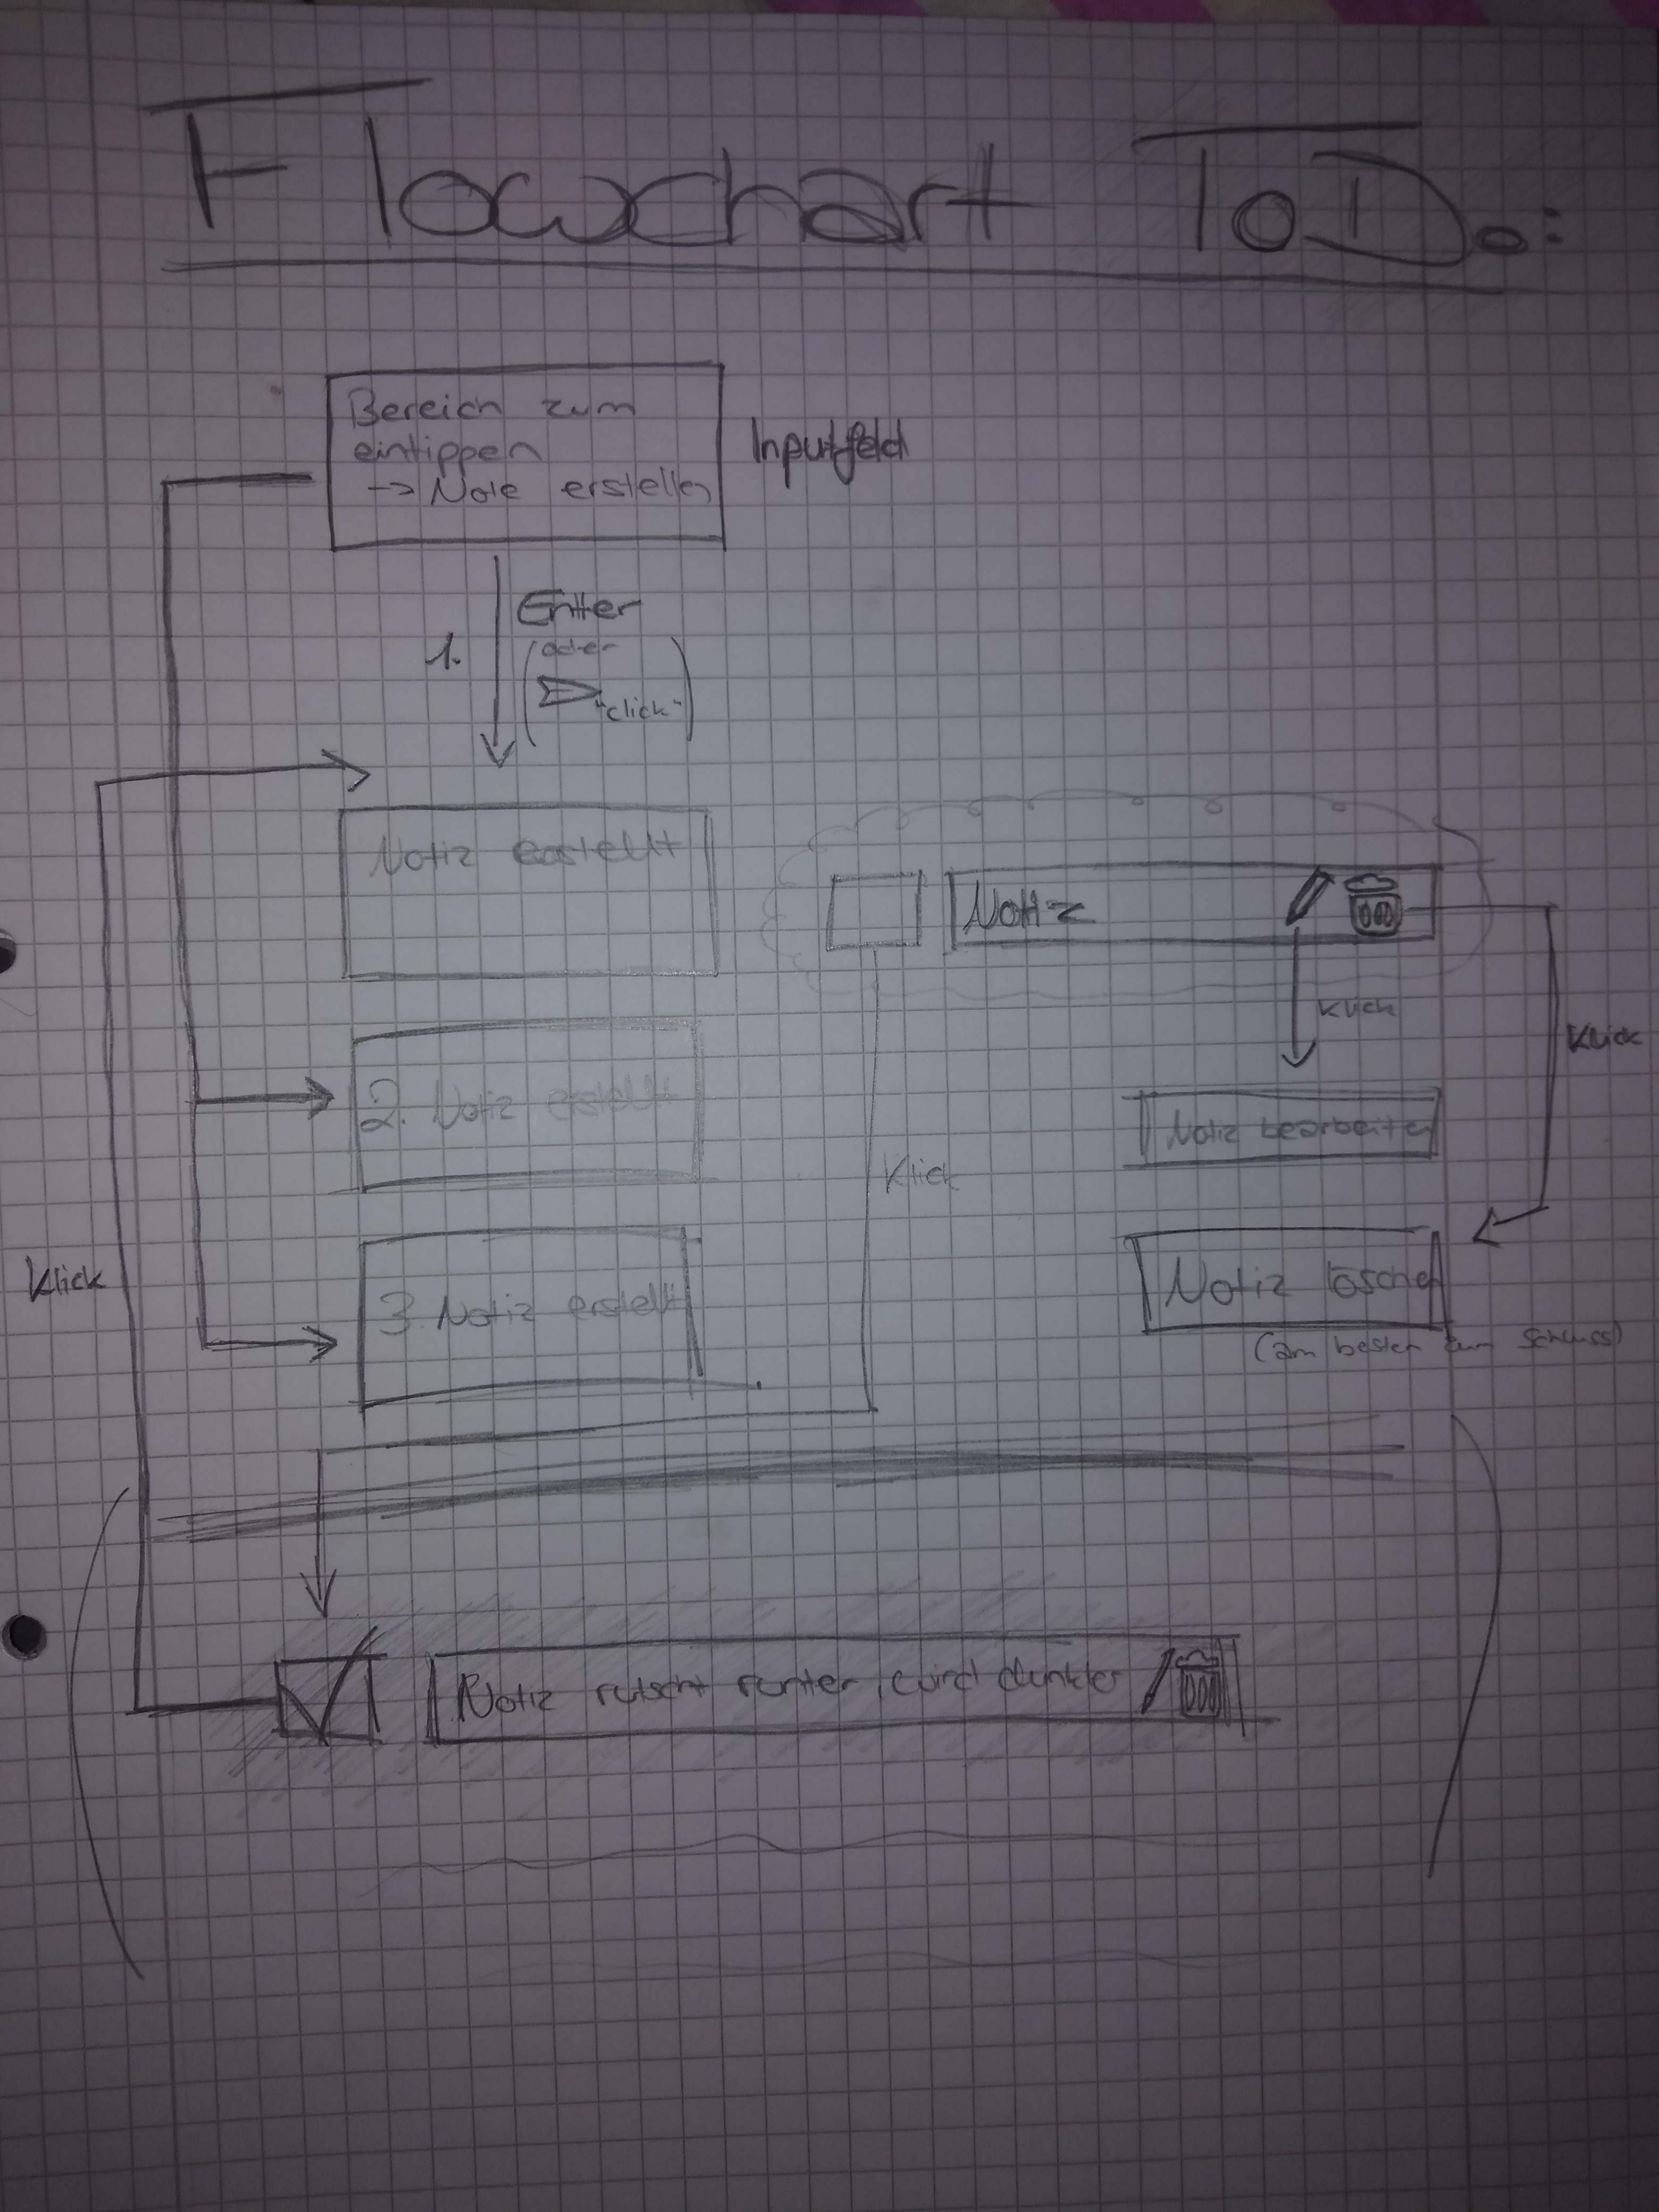 Flowchart ToDo:
Bereich zum
eintippen
-> Note erstellen
Inputfeld
1.
Enter
(oder
"click")
Notiz erstellt
Notiz
Klick
Klick
2. Notiz erstellt
Notiz bearbeiten
Klick
3. Notiz erstellt
Notiz löschen
(am besten zum Schluss)
Klick
Notiz rutscht runter, wird dunkler